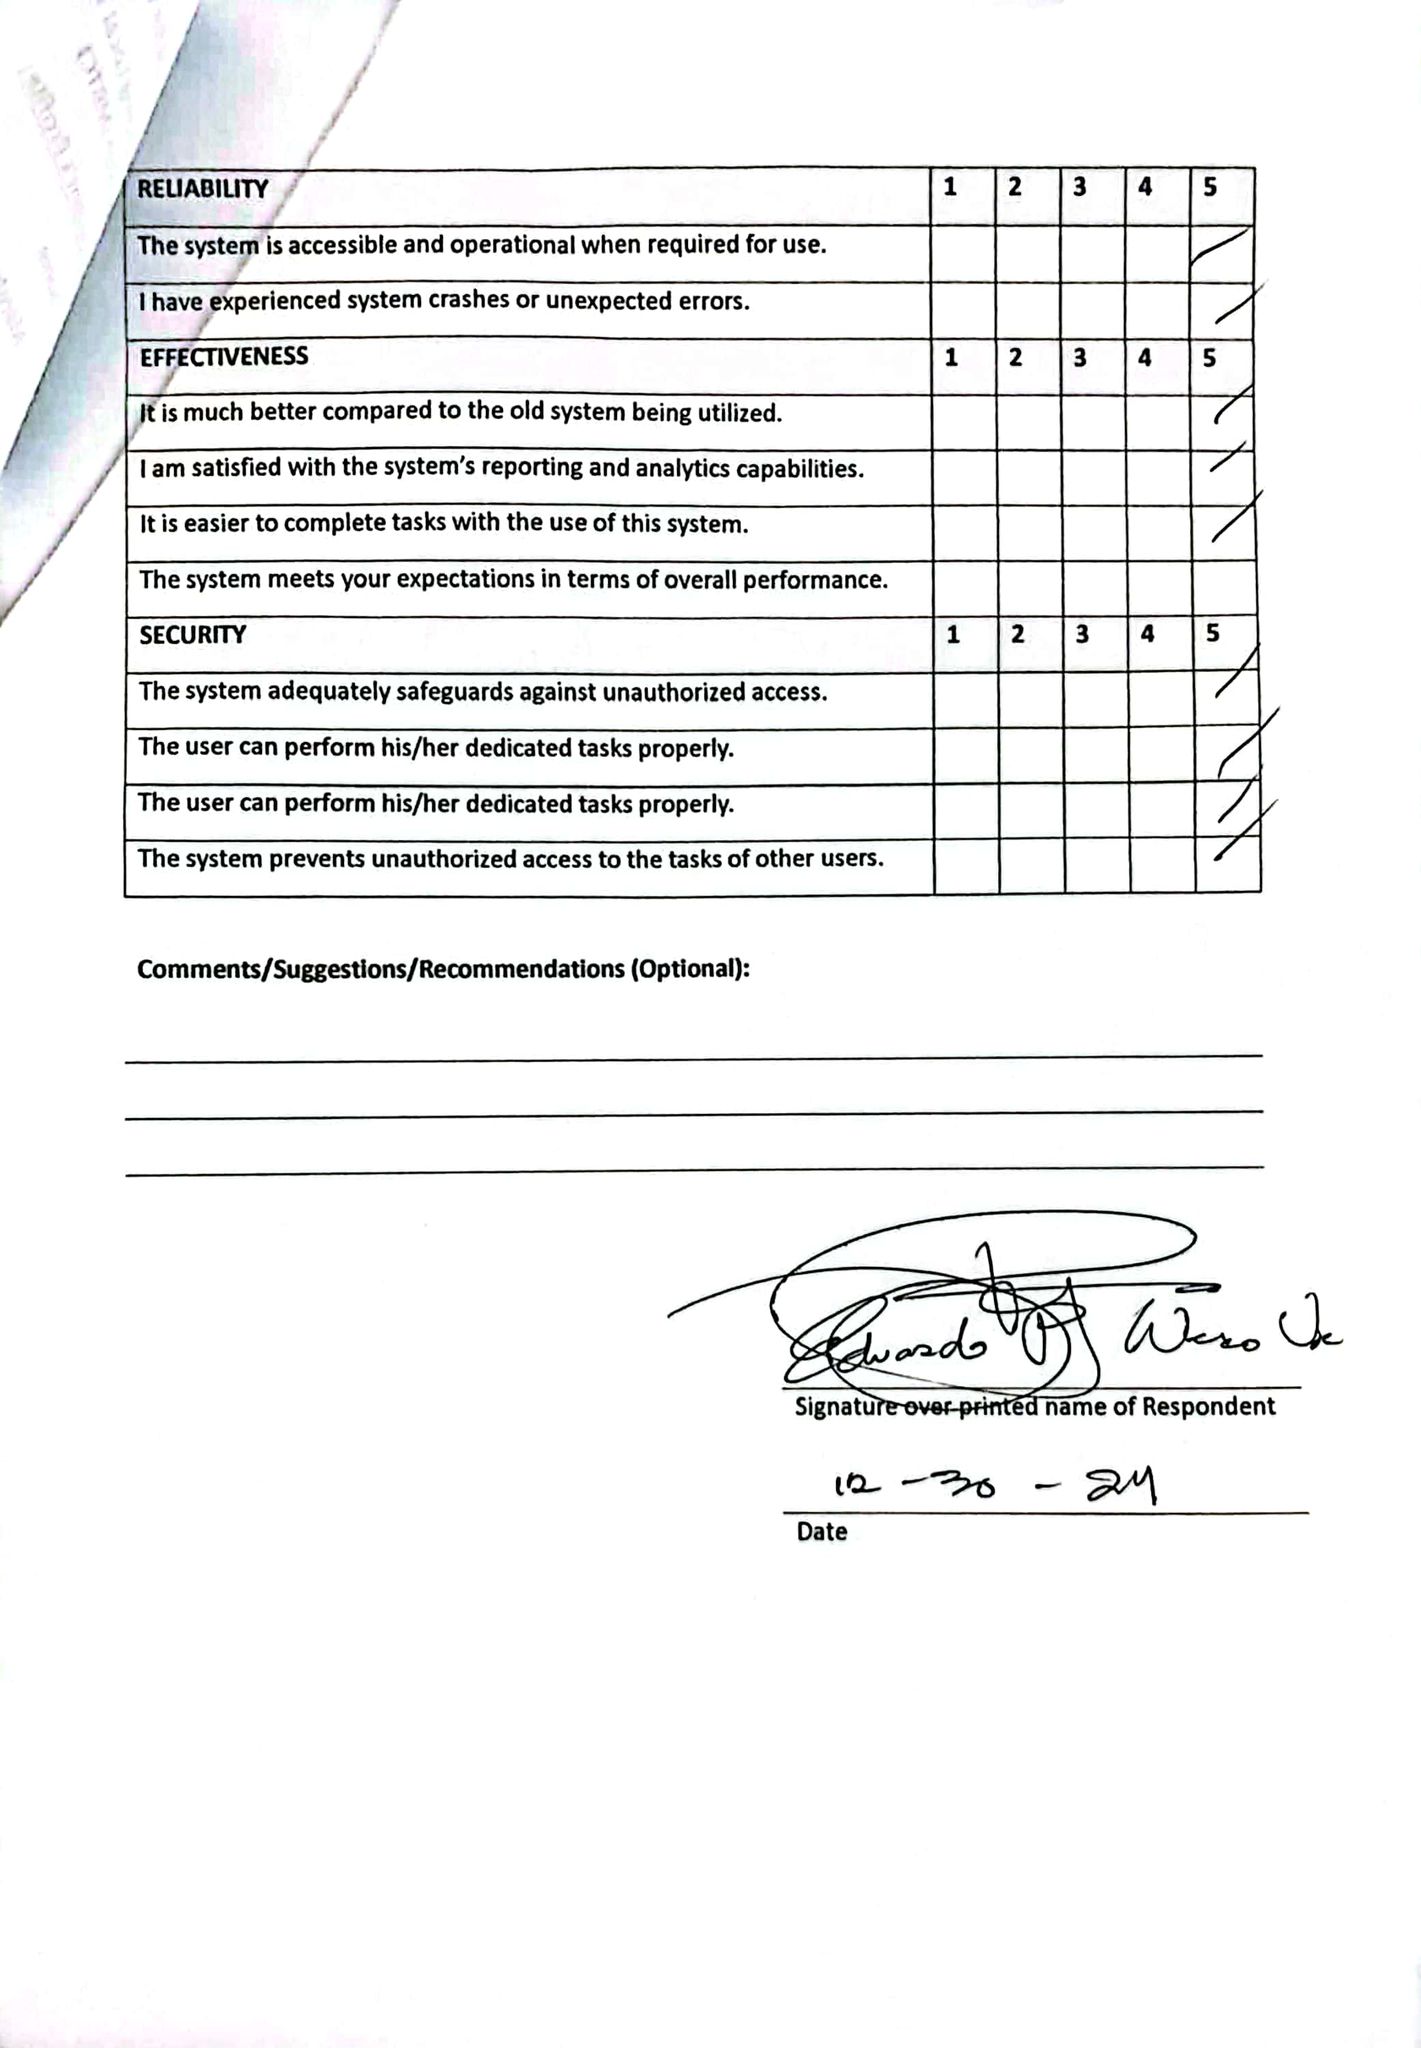 RELIABILITY 1 2 3 4 5
The system is accessible and operational when required for use.
I have experienced system crashes or unexpected errors.
EFFECTIVENESS 1 2 3 4 5
It is much better compared to the old system being utilized.
I am satisfied with the system's reporting and analytics capabilities.
It is easier to complete tasks with the use of this system.
The system meets your expectations in terms of overall performance.
SECURITY 1 2 3 4 5
The system adequately safeguards against unauthorized access.
The user can perform his/her dedicated tasks properly.
The user can perform his/her dedicated tasks properly.
The system prevents unauthorized access to the tasks of other users.
Comments/Suggestions/Recommendations (Optional):
Eduardo
Signature over printed name of Respondent
12 - 30 - 24
Date